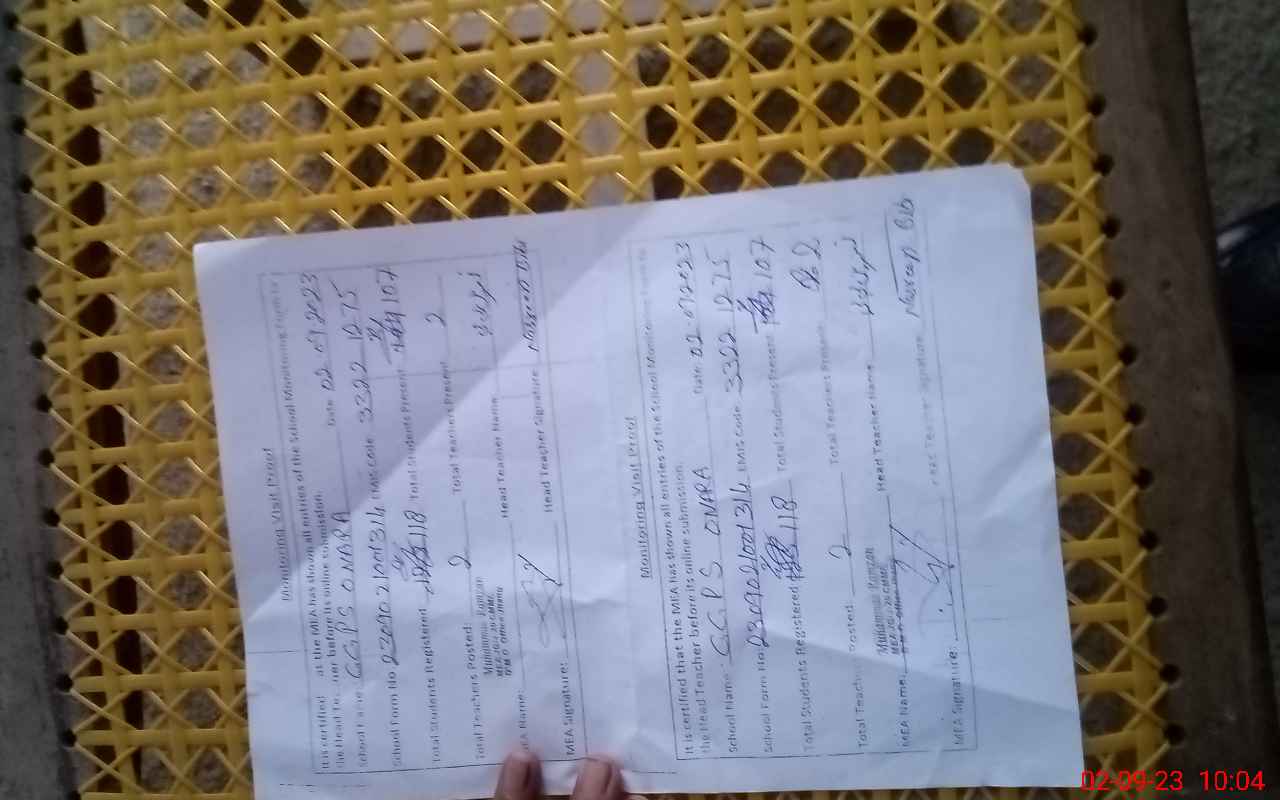 Monitoring Visit Proof
It is certified at the MEA has shown all entries of the School Monitoring Form to
the Head Te her before its online submission.
School Name GGPS ONARA Date 02.09.2023
School Form No 2309021001314 EMIS Code 3322 1275
Total Students Registered 118 Total Students Present 107
Total Teachers Posted: 2 Total Teachers Present 2
Muhammad Ramzan
MEA Name: Head Teacher Name
MEA Signature: Head Teacher Signature
Monitoring Visit Proof
It is certified that the MEA has shown all entries of the School Monitoring Form to
the Head Teacher before its online submission.
School Name: GGPS ONARA Date: 02.09.2023
School Form No 2309021001314 EMIS Code 3322 1275
Total Students Registered 118 Total Students Present 107
Total Teachers Posted: 2 Total Teachers Present 2
Muhammad Ramzan
MEA Name: Head Teacher Name
MEA Signature: Head Teacher Signature
02-09-23 10:04